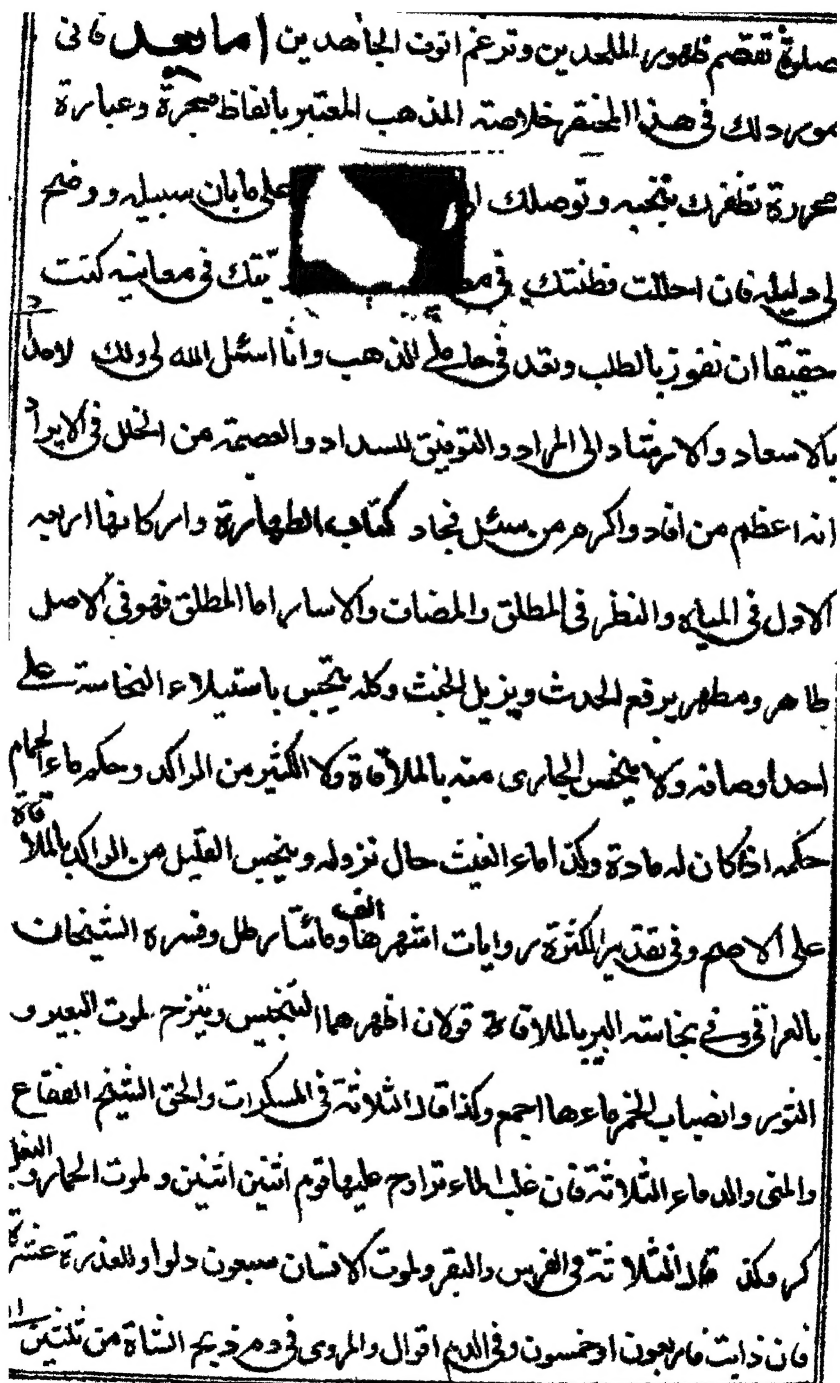 صلوة تقصم ظهور الملحدين وترغم انوف الجاحدين اما بعد فانى
مورد لك فى هذا المختصر خلاصة المذهب المعتبر بالفاظ محبرة وعبارة
محررة تظفرك بنخبه وتوصلك على ما بان سبيله ووضح
لى دليله فان احللت فطنتك فى يّتك فى معانيه كنت
حقيقا ان تفوز بالطلب وتعد فى حاملى المذهب وانا اسئل الله لى ولك الامداد
بالاسعاد والارشاد الى المراد والتوفيق للسداد والعصمة من الخلل فى الايراد
انه اعظم من افاد واكرم من سئل فجاد كتاب الطهارة واركانها اربعه
الاول فى المياه والنظر فى المطلق والمضاف والاسار اما المطلق فهو فى الاصل
طاهر ومطهر يرفع الحدث ويزيل الخبث وكله ينجس باستيلاء النجاسة على
احد اوصافه ولا ينجس الجارى منه بالملاقاة ولا الكثير من الراكد وحكم ماء الحمام
حكمه اذا كان له مادة وكذا ماء الغيث حال نزوله وينجس القليل من الراكد بالملاقاة
على الاصح وفى تقدير الكثرة روايات اشهرها الف ومائتا رطل وفسره الشيخان
بالعراقى وفى نجاسة البير بالملاقاة قولان اظهرهما التنجيس وينزح لموت البعير و
الثور وانصباب الخمر ماءها اجمع وكذا قال الثلاثة فى المسكرات والحق الشيخ الفقاع
والمنى والدماء الثلاثة فان غلب الماء تراوح عليها قوم اثنين اثنين ولموت الحمار والبغل
كر وكذا قال الثلاثة فى الفرس والبقر ولموت الانسان سبعون دلوا وللعذرة عشرة
فان ذابت فاربعون او خمسون وفى الدم اقوال والمروى فى دم ذبح الشاة من ثلثين الى